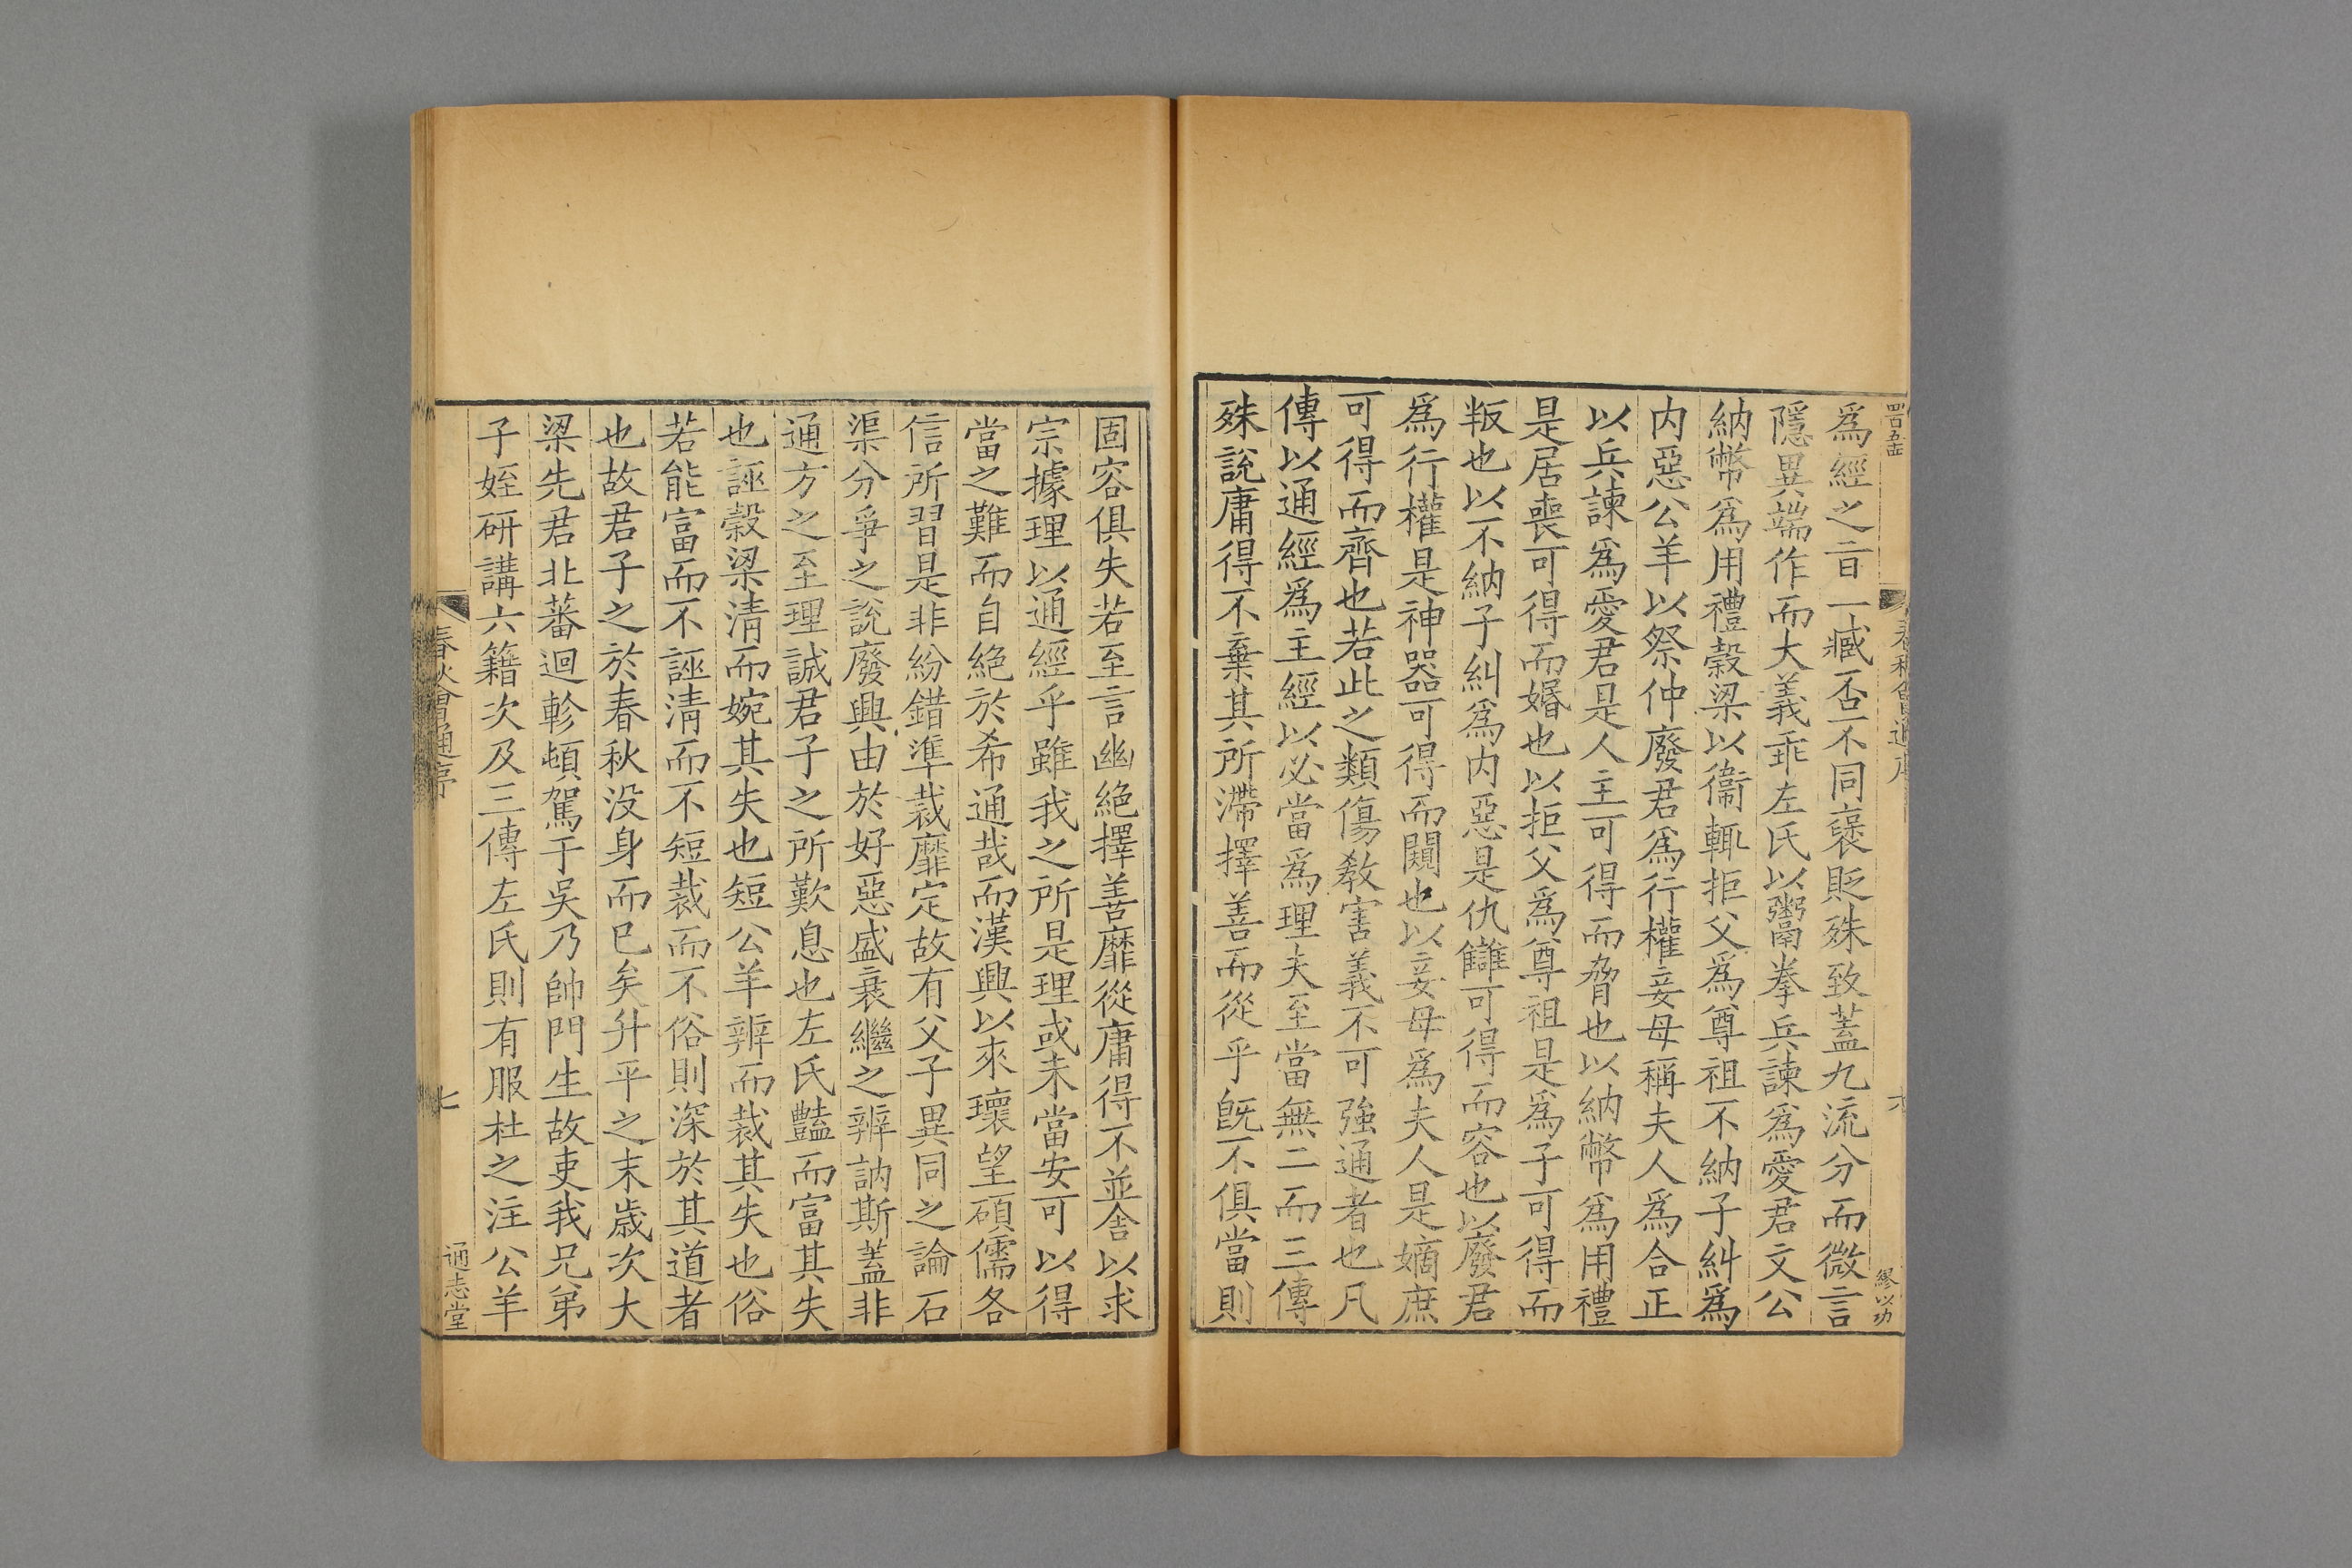 爲經之旨一臧否不同褒貶殊致蓋九流分而微言
隱異端作而大義乖左氏以鬻拳兵諫爲愛君文公
納幣爲用禮穀梁以衞輒拒父爲尊祖不納子糾爲
内惡公羊以祭仲廢君爲行權妾母稱夫人爲合正
以兵諫爲愛君是人主可得而脅也以納幣爲用禮
是居喪可得而婚也以拒父爲尊祖是爲子可得而
叛也以不納子糾爲内惡是仇讎可得而容也以廢君
爲行權是神器可得而闚也以妾母爲夫人是嫡庶
可得而齊也若此之類傷敎害義不可強通者也凡
傳以通經爲主經以必當爲理夫至當無二而三傳
殊說庸得不棄其所滯擇善而從乎旣不俱當則
繆以功
固容俱失若至言幽絶擇善靡從庸得不並舍以求
宗據理以通經乎雖我之所是理或未當安可以得
當之難而自絶於希通哉而漢興以來瓌望碩儒各
信所習是非紛錯準裁靡定故有父子異同之論石
渠分爭之說廢興由於好惡盛衰繼之辨訥斯蓋非
通方之至理誠君子之所歎息也左氏豔而富其失
也誣穀梁清而婉其失也短公羊辨而裁其失也俗
若能富而不誣清而不短裁而不俗則深於其道者
也故君子之於春秋没身而已矣升平之末歲次大
梁先君北蕃迴軫頓駕于吳乃帥門生故吏我兄弟
子姪研講六籍次及三傳左氏則有服杜之注公羊
春秋會通序
七
通志堂